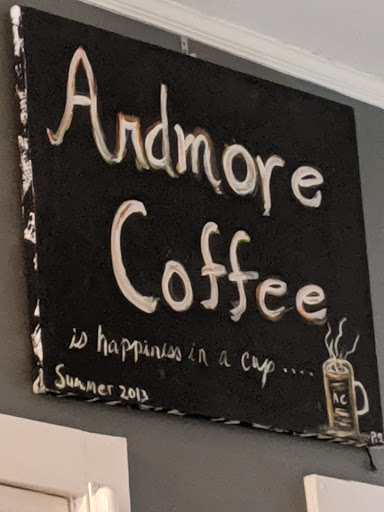 Ardmore
Coffee
is happiness in a cup....
Summer 2013
AC